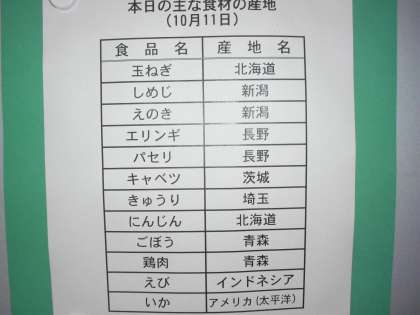 本日の主な食材の産地
(10月11日)
食品名 産地名
玉ねぎ 北海道
しめじ 新潟
えのき 新潟
エリンギ 長野
パセリ 長野
キャベツ 茨城
きゅうり 埼玉
にんじん 北海道
ごぼう 青森
鶏肉 青森
えび インドネシア
いか アメリカ(太平洋)